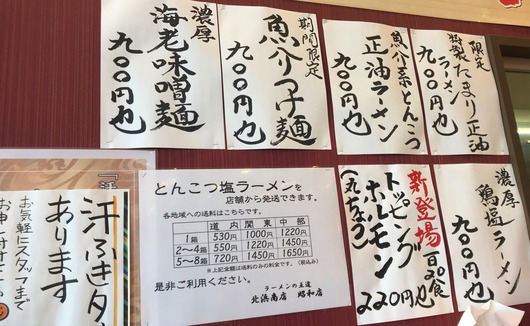 濃厚
海老味噌麺
九〇〇円也
期間限定
魚介つけ麺
九〇〇円也
魚介系とんこつ
正油ラーメン
九〇〇円也
限定
特製たまり正油
ラーメン
九〇〇円也
汗ふきタ
あります
お気軽にスタッフまで
とんこつ塩ラーメンを
店舗から発送できます。
各地域への送料はこちらです。
道内 関東 中部
1箱 530円 1000円 1220円
2〜4箱 550円 1220円 1450円
5〜8箱 720円 1450円 1650円
※上記金額は送料のみの料金です。(税込み)
是非ご利用ください。
ラーメンの王道
北浜商店 昭和店
新登場 百20食
トッピング
ホルモン
(丸ちょう)
220円也
濃厚
鶏塩ラーメン
九〇〇円也